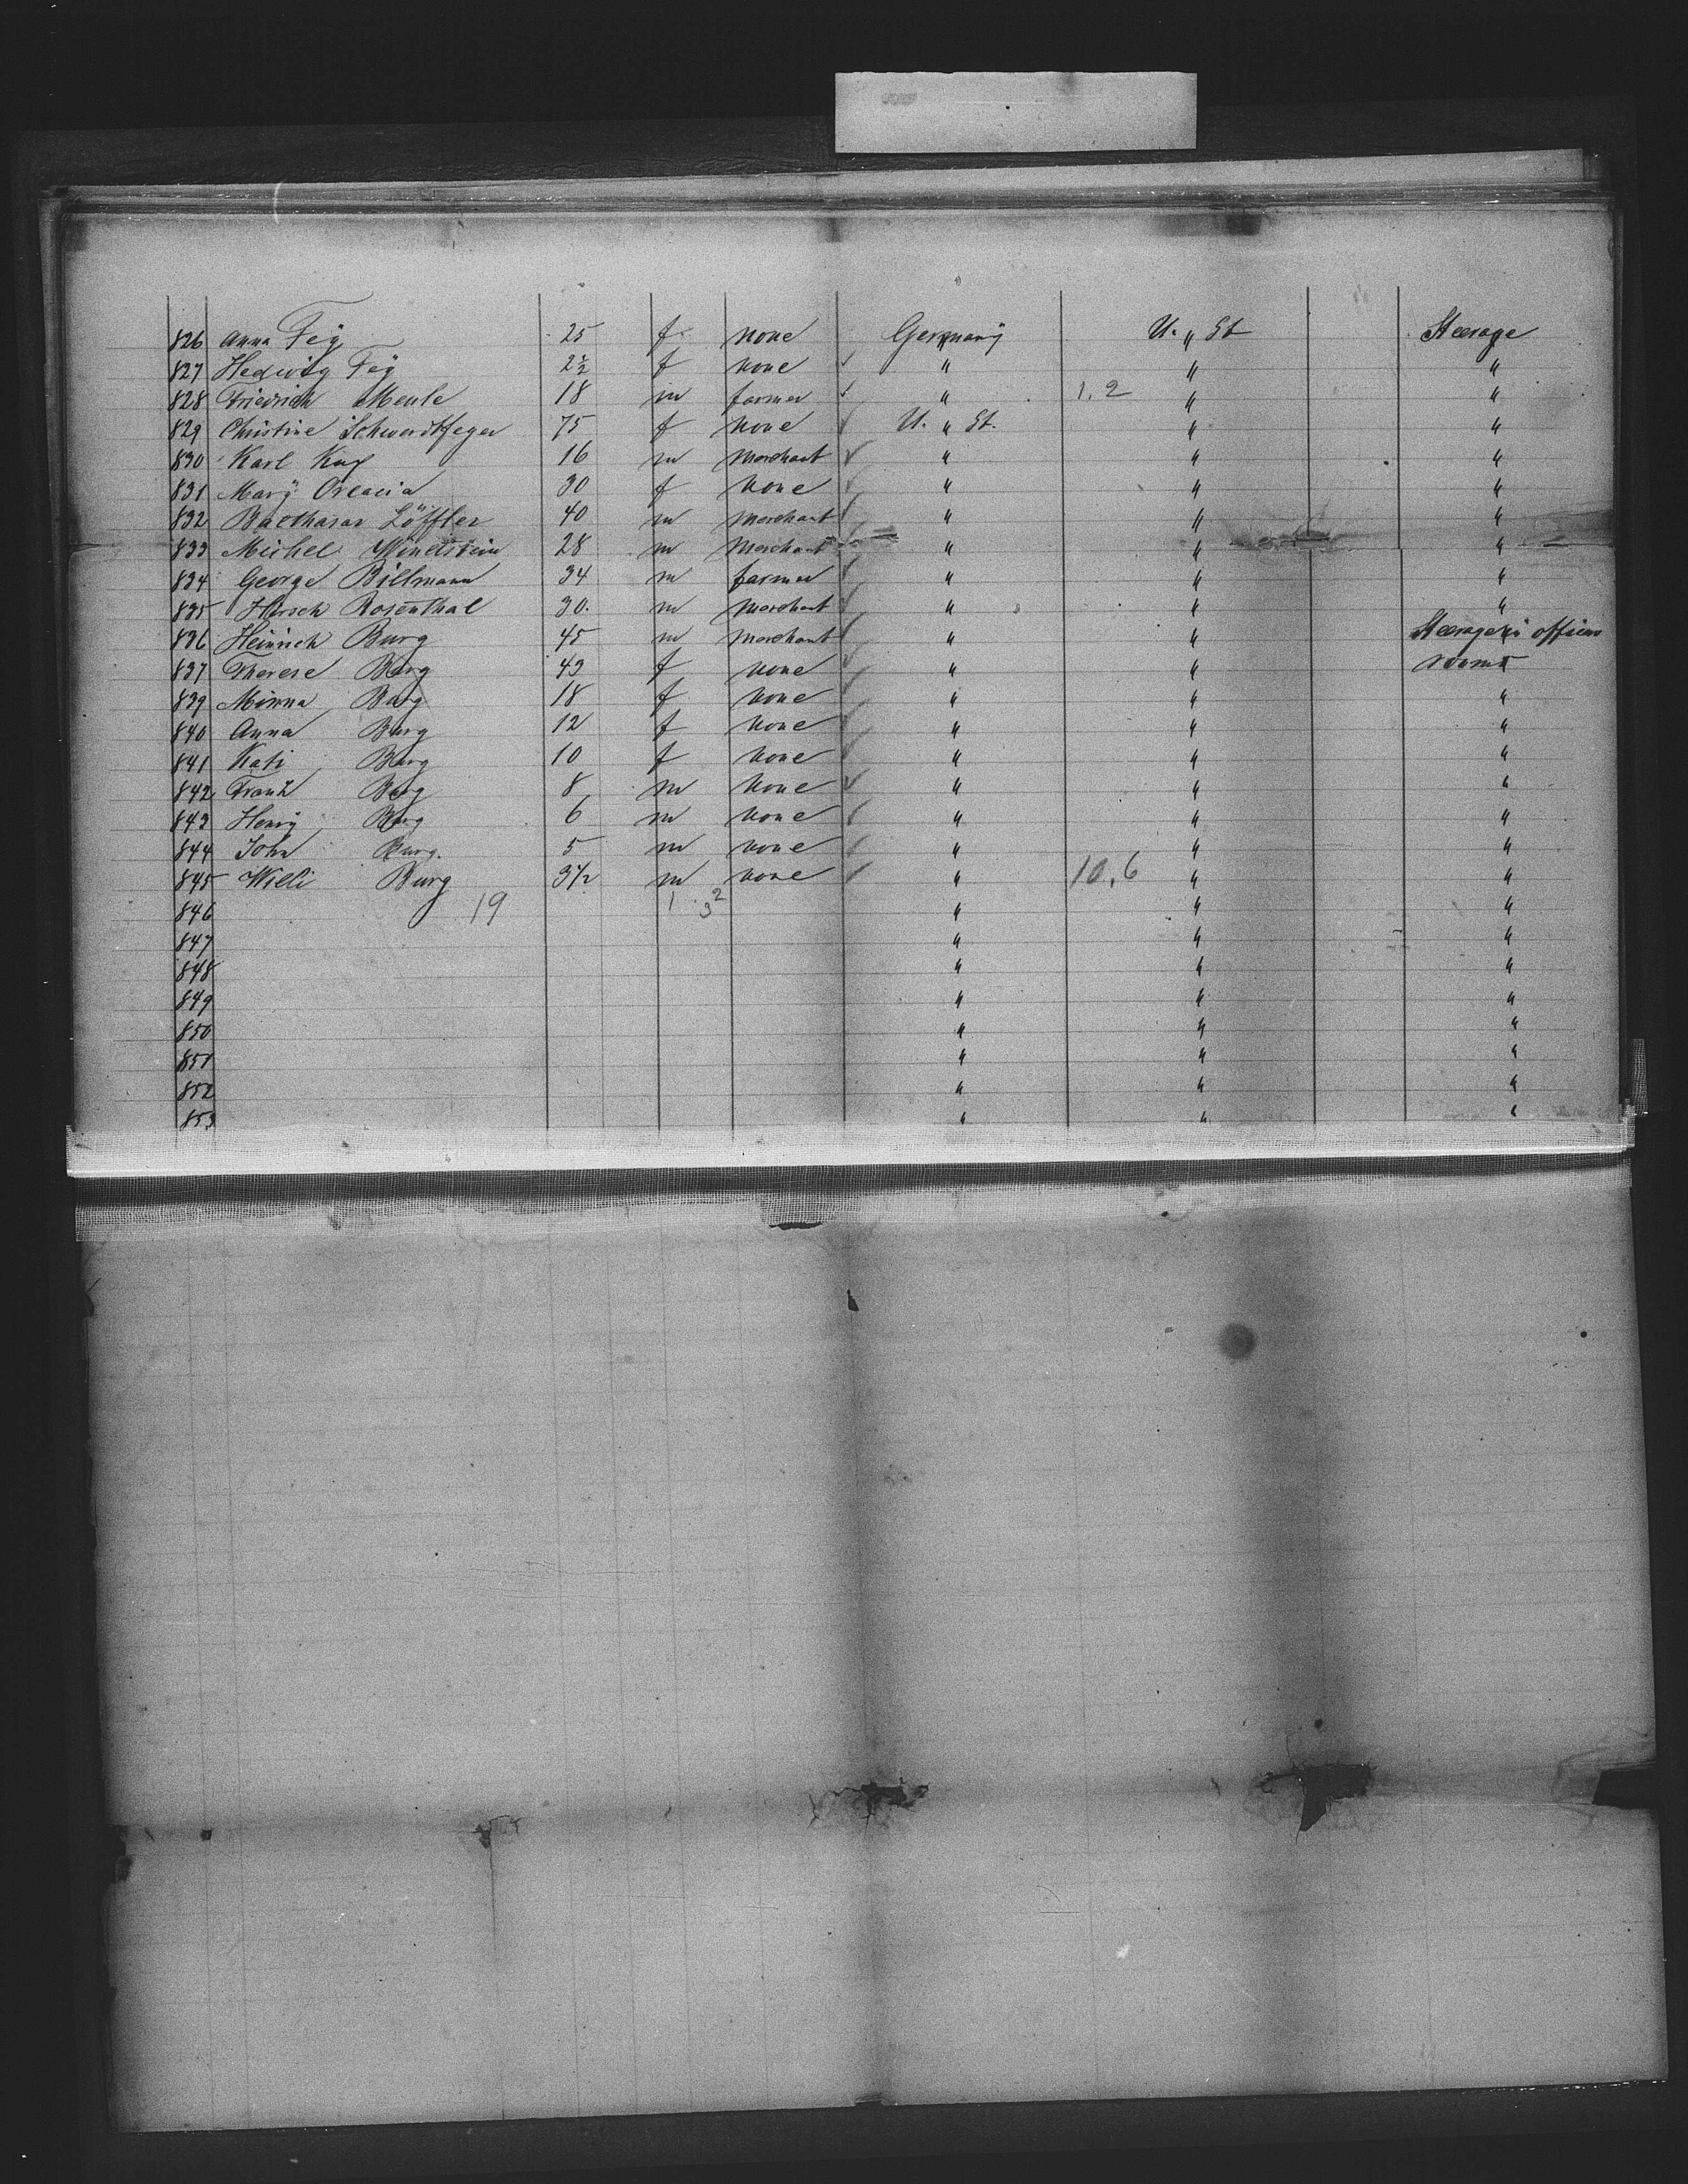 826 Anna Fey 25 f none Germany " U. " St Steerage "
827 Hedwig Fey 2½ f none " " "
828 Friedrich Menle 18 m farmer " 1,2 " "
829 Christine Schwerdtfeger 75 f none U. " St. " "
830 Karl 16 m merchant " " "
831 Mary 30 f none " " "
832 Balthasar Löffler 40 m merchant " " "
833 Michel Winelstein 28 m merchant " " "
834 George Billmann 34 m farmer " " "
835 Hirsch Rosenthal 30. m merchant " " "
836 Heinrich Burg 45 m merchant " " Steerage in officers
837 Therese Burg 43 f none " " rooms
839 Minna Burg 18 f none " " "
840 Anna Burg 12 f none " " "
841 Kati Burg 10 f none " " "
842 Frank Burg 8 m none " " "
843 Henry Burg 6 m none " " "
844 John Burg. 5 m none " " "
845 Willi Burg 3½ m none " 10,6 " "
846 19 1 3 2 " " "
847 " " "
848 " " "
849 " " "
850 " " "
851 " " "
852 " " "
853 " " "